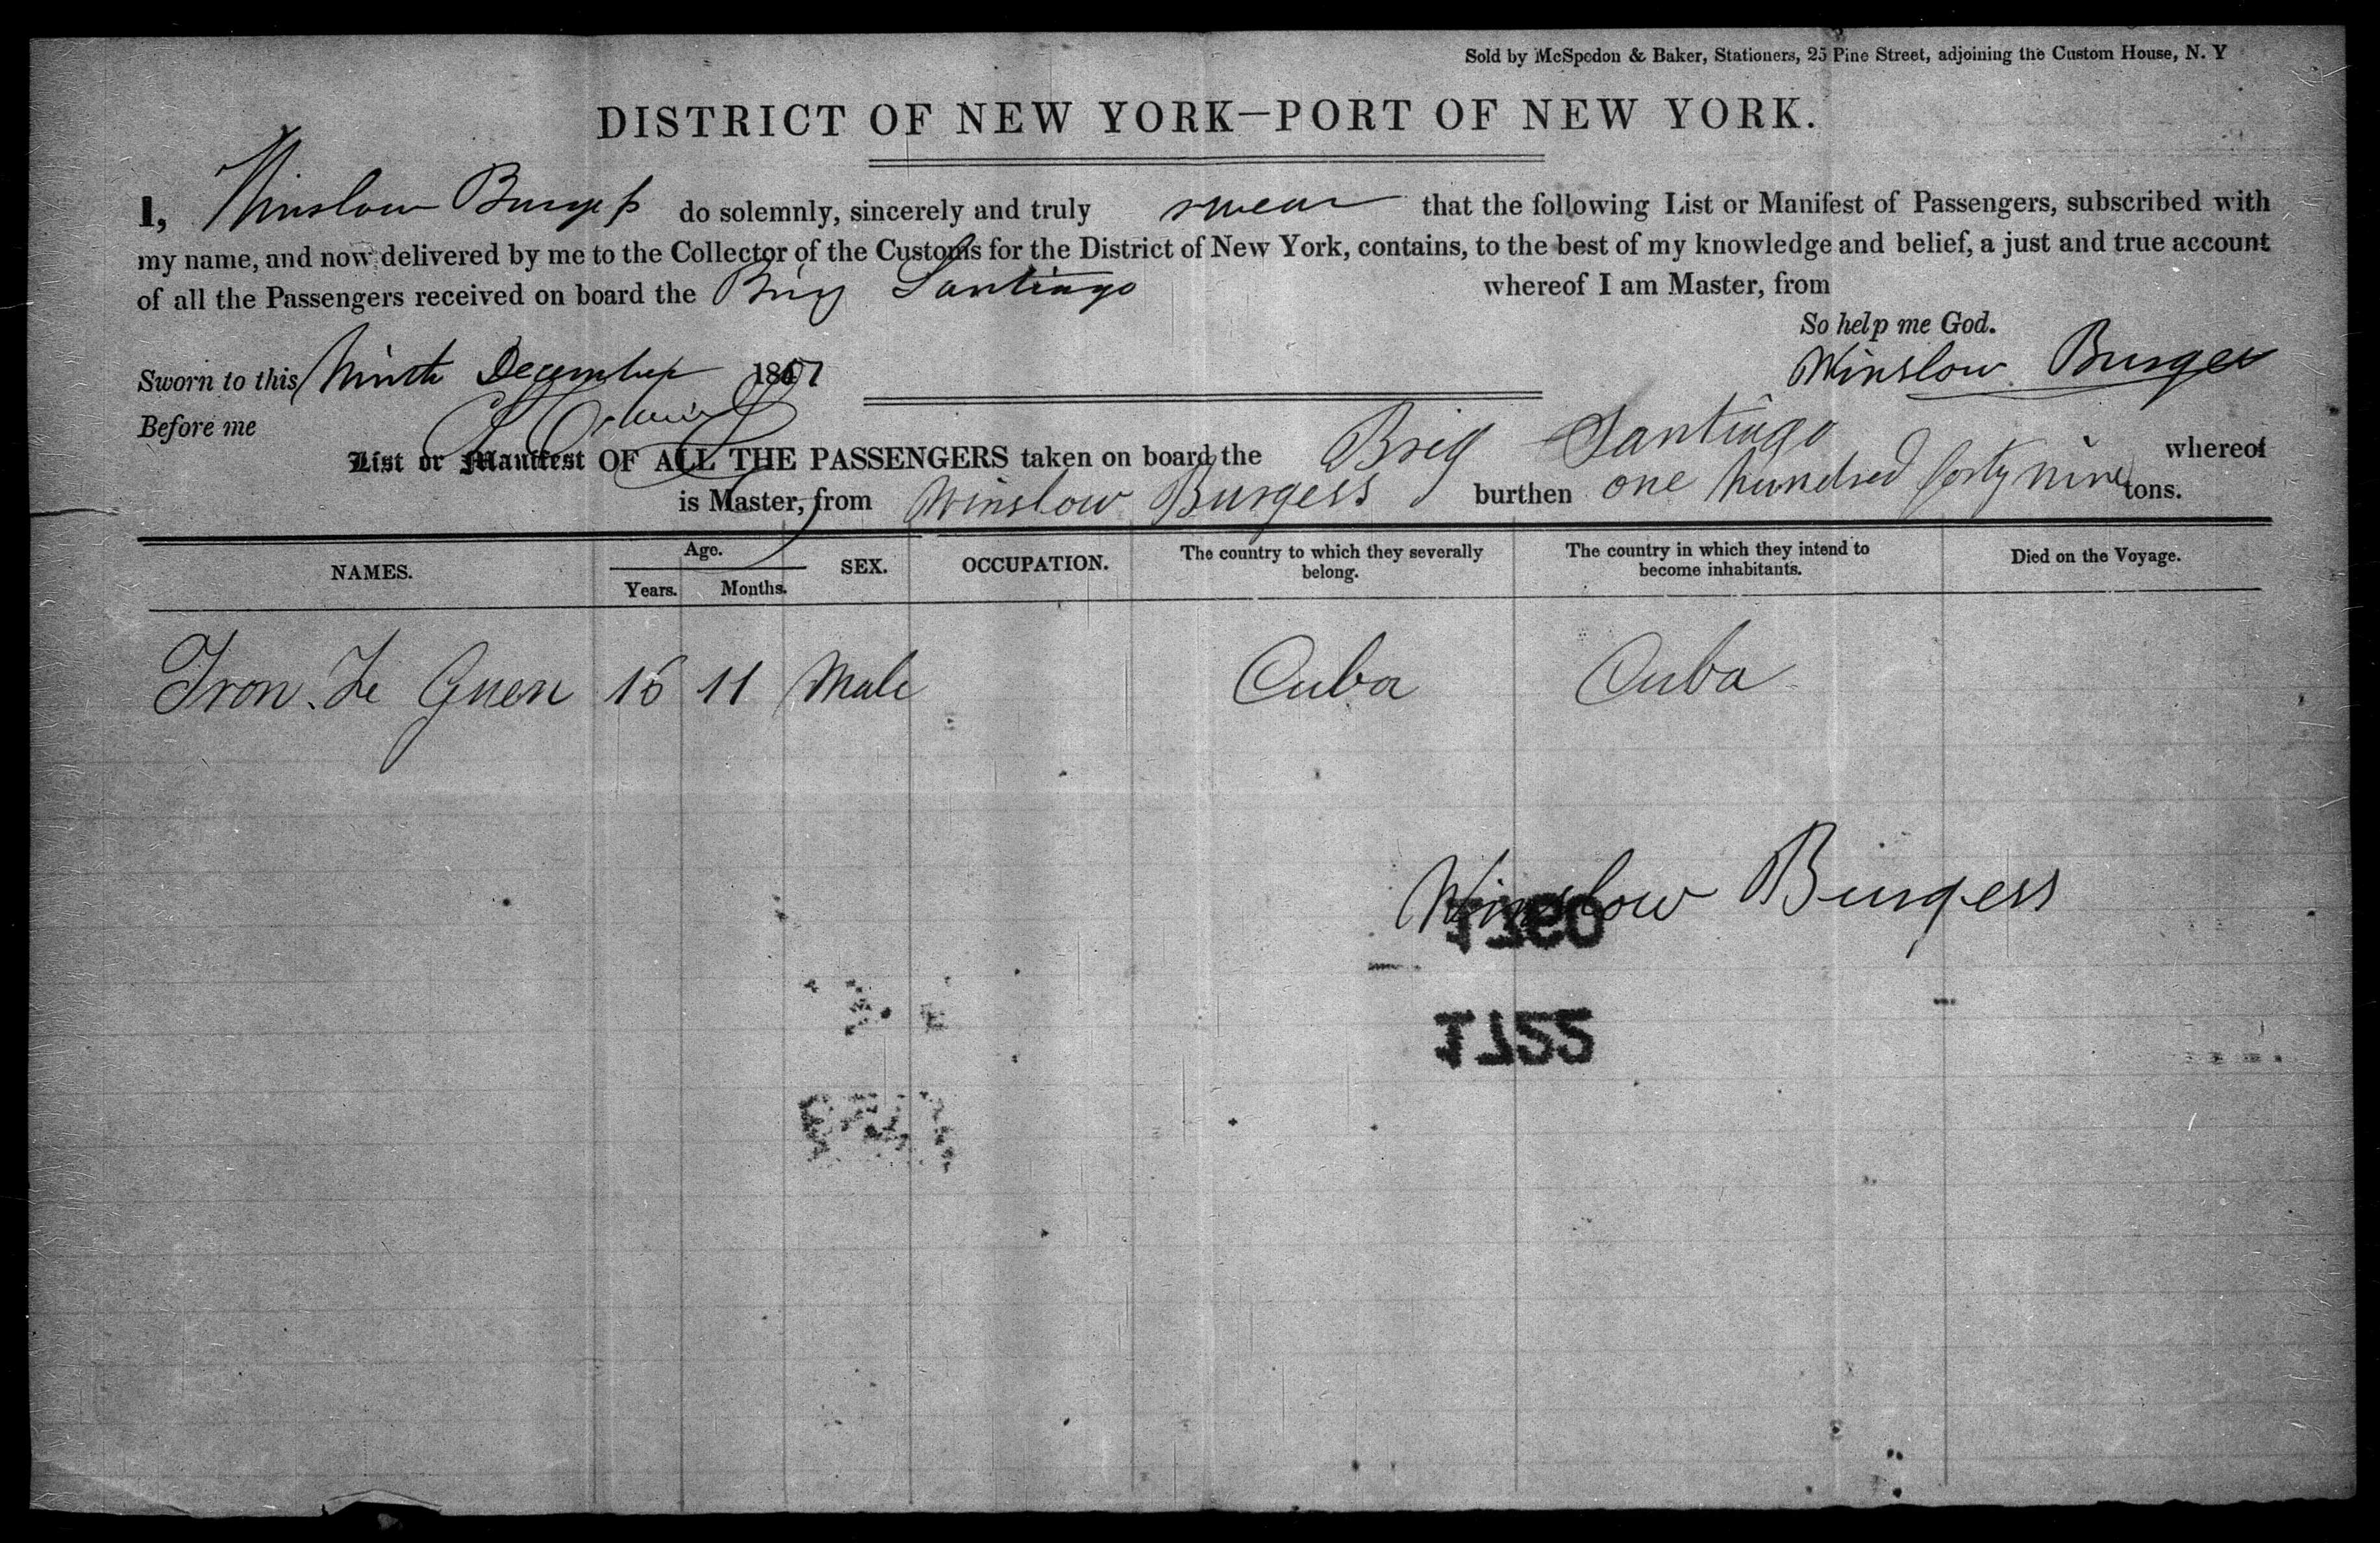 Sold by McSpedon & Baker, Stationers, 25 Pine Street, adjoining the Custom House, N. Y
DISTRICT OF NEW YORK—PORT OF NEW YORK.
I, Winslow Burgess do solemnly, sincerely and truly swear that the following List or Manifest of Passengers, subscribed with
my name, and now delivered by me to the Collector of the Customs for the District of New York, contains, to the best of my knowledge and belief, a just and true account
of all the Passengers received on board the Brig Santiago whereof I am Master, from
So help me God.
Sworn to this Ninth December Winslow Burgess
Before me
List or Manifest OF ALL THE PASSENGERS taken on board the Brig Santiago whereof
is Master, from Winslow Burgess burthen one hundred forty nine tons.
NAMES. Age. SEX. OCCUPATION. The country to which they severally belong. The country in which they intend to become inhabitants. Died on the Voyage.
Years. Months.
Le Guen 16 11 Male Cuba Cuba
Winslow Burgess